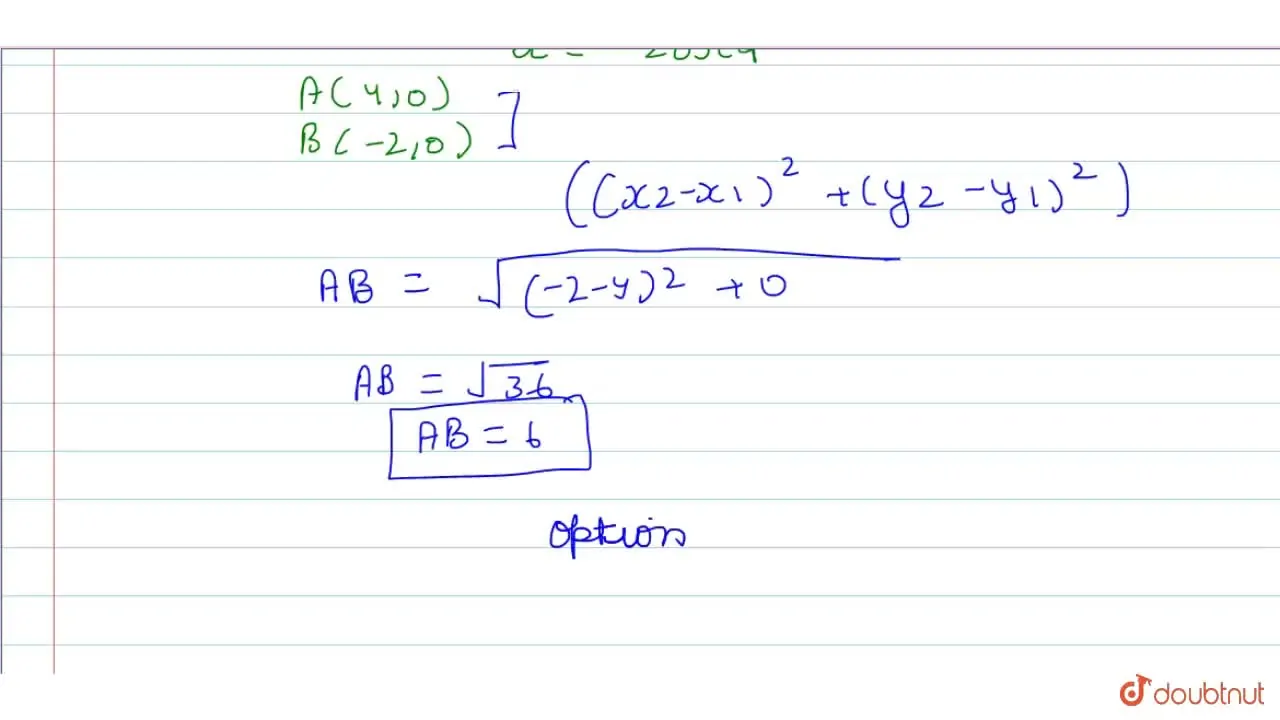 A(4,0)
B(-2,0) ]
((x2-x1)² + (y2-y1)²)
AB = √(-2-4)² + 0
AB = √36
AB = 6
option
doubtnut